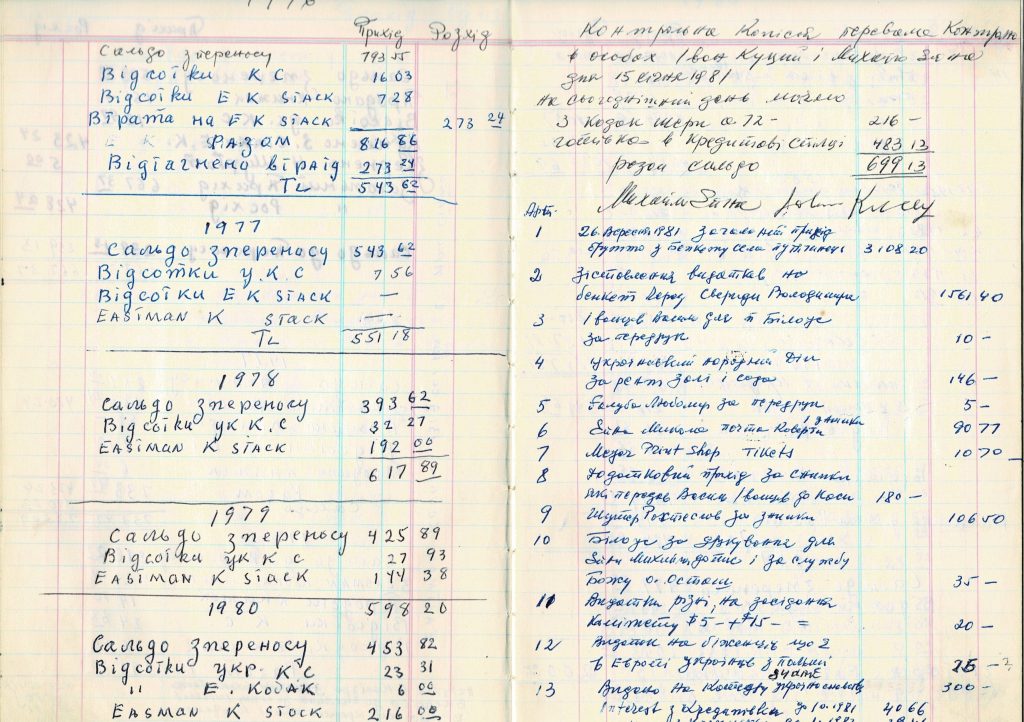 1976
Прихід Розхід
Сальдо зпереносу 793 55
Відсотки К С 16 03
Відсотки Е К STACK 7 28
Втрата на Е К STACK 273 24
Е К РАЗОМ 816 86
Відтагнено втрата 273 24
TL 543 62
1977
Сальдо зпереносу 543 62
Відсотки У.К С 7 56
Відсотки Е К STACK —
EASTMAN K STACK —
TL 551 18
1978
Сальдо зпереносу 393 62
Відсотки ук К.С 32 27
EASTMAN K STACK 192 00
617 89
1979
Сальдо зпереносу 425 89
Відсотки ук К С 27 93
EASTMAN K STACK 144 38
1980 598 20
Сальдо зпереносу 453 82
Відсотки укр. К С 23 31
" Е. Кодак 6 00
EASTMAN K STOCK 216 00
Контрольна Комісія перевела Контролю
в особах Іван Куций і Михайло
дня 15 січня 1981
на сьогоднішний день маємо
3 Кодак шери а 72 - 216 —
готівка в Кредитові спілці 483 13
разом сальдо 699 13
Михайло
1 26 Верест 1981 загальний прихід
брутто з бенкету 3108 20
2 Зіставлення видатків на
бенкет Володимира 1561 40
3 Іванців Василь для п Білоус
за передрук 10 —
4 Український народний Дім
за рент залі і сода 146 —
5 Голуба Любомир за передрук 5 —
6 Микола почта Коверти і значки 90 77
7 Print Shop Tikets 10 70
8 Додатковий прихід за знимки
які передав Василь Іванців до Каси 180 —
9 Ростислав за знимки 106 50
10 Білоус за друкування для
Михайла і за службу
Божу о. 35 —
11 Видатки різні, на засідання
Комітету $5 – + $15 – = 20 —
12 Видаток на біженців що є
в Европі українців з Польщі 25 —
13 Видано на Катедру 300 —
Interest з Кредитівки до 10.1981 40 66